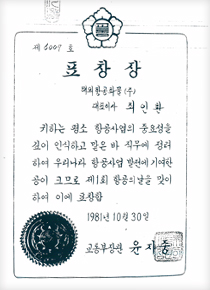 제 6007 호
표 창 장
해외항공화물(주)
대표이사 최인환
귀하는 평소 항공사업의 중요성을
깊이 인식하고 맡은 바 직무에 정려
하여 우리나라 항공사업 발전에 기여한
공이 크므로 제1회 항공의날을 맞이
하여 이에 표창함
1981년 10월 30일
교통부장관 윤자중